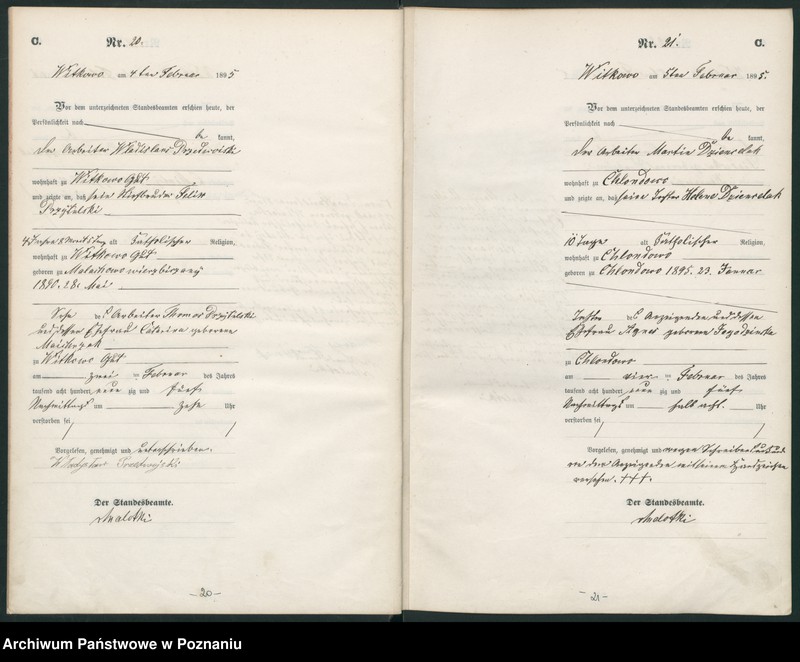 C.
Nr. 20.
Witkowo am 4ten Februar 1895
Vor dem unterzeichneten Standesbeamten erschien heute, der
Persönlichkeit nach
be kannt,
der Arbeiter
wohnhaft zu Witkowo Gut
und zeigte an, daß sein
alt katholischer Religion,
wohnhaft zu Witkowo Gut
geboren zu
1890. 28. Mai
Sohn des Arbeiter Thomas
und dessen Ehefrau Catarina geborene
zu Witkowo Gut
am zwei ten Februar des Jahres
tausend acht hundert neun zig und fünf
Nachmittags um zehn Uhr
verstorben sei
Vorgelesen, genehmigt und unterschrieben.
Der Standesbeamte.
Malotki
-20-
Nr. 21. C.
Witkowo am 5ten Februar 1895.
Vor dem unterzeichneten Standesbeamten erschien heute, der
Persönlichkeit nach
be kannt,
der Arbeiter Martin Dziersolak
wohnhaft zu Chlondowo
und zeigte an, daß seine Tochter Helene Dziersolak
10 Tage alt katholischer Religion,
wohnhaft zu Chlondowo
geboren zu Chlondowo 1895. 23. Januar
Tochter des Anzeigenden und dessen
Ehefrau Agnes geborene
zu Chlondowo
am vier ten Februar des Jahres
tausend acht hundert neun zig und fünf
Nachmittags um halb acht Uhr
verstorben sei
Vorgelesen, genehmigt und wegen Schreibensunkunde
von dem Anzeigenden mit seinem Handzeichen
versehen. +++.
Der Standesbeamte.
Malotki
-21-
Archiwum Państwowe w Poznaniu